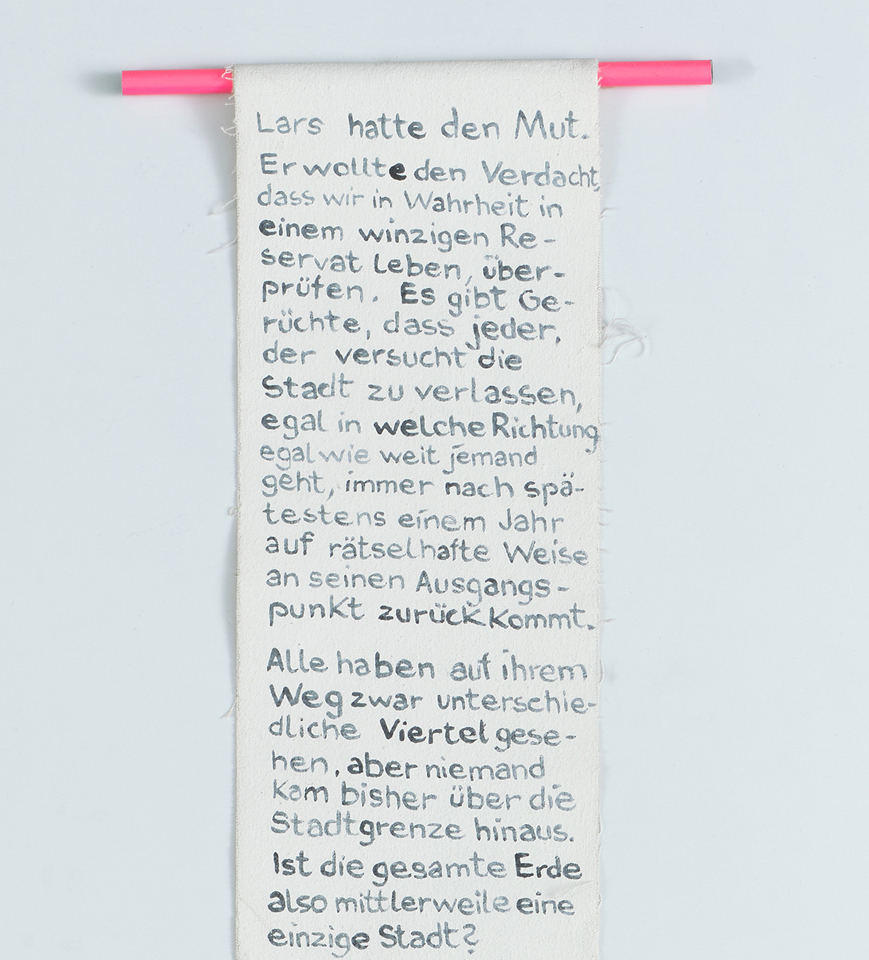 Lars hatte den Mut.
Er wollte den Verdacht,
dass wir in Wahrheit in
einem winzigen Re-
servat leben, über-
prüfen. Es gibt Ge-
rüchte, dass jeder,
der versucht die
Stadt zu verlassen,
egal in welche Richtung
egal wie weit jemand
geht, immer nach spä-
testens einem Jahr
auf rätselhafte Weise
an seinen Ausgangs-
punkt zurück kommt.
Alle haben auf ihrem
Weg zwar unterschie-
dliche Viertel gese-
hen, aber niemand
kam bisher über die
Stadtgrenze hinaus.
Ist die gesamte Erde
also mittlerweile eine
einzige Stadt?